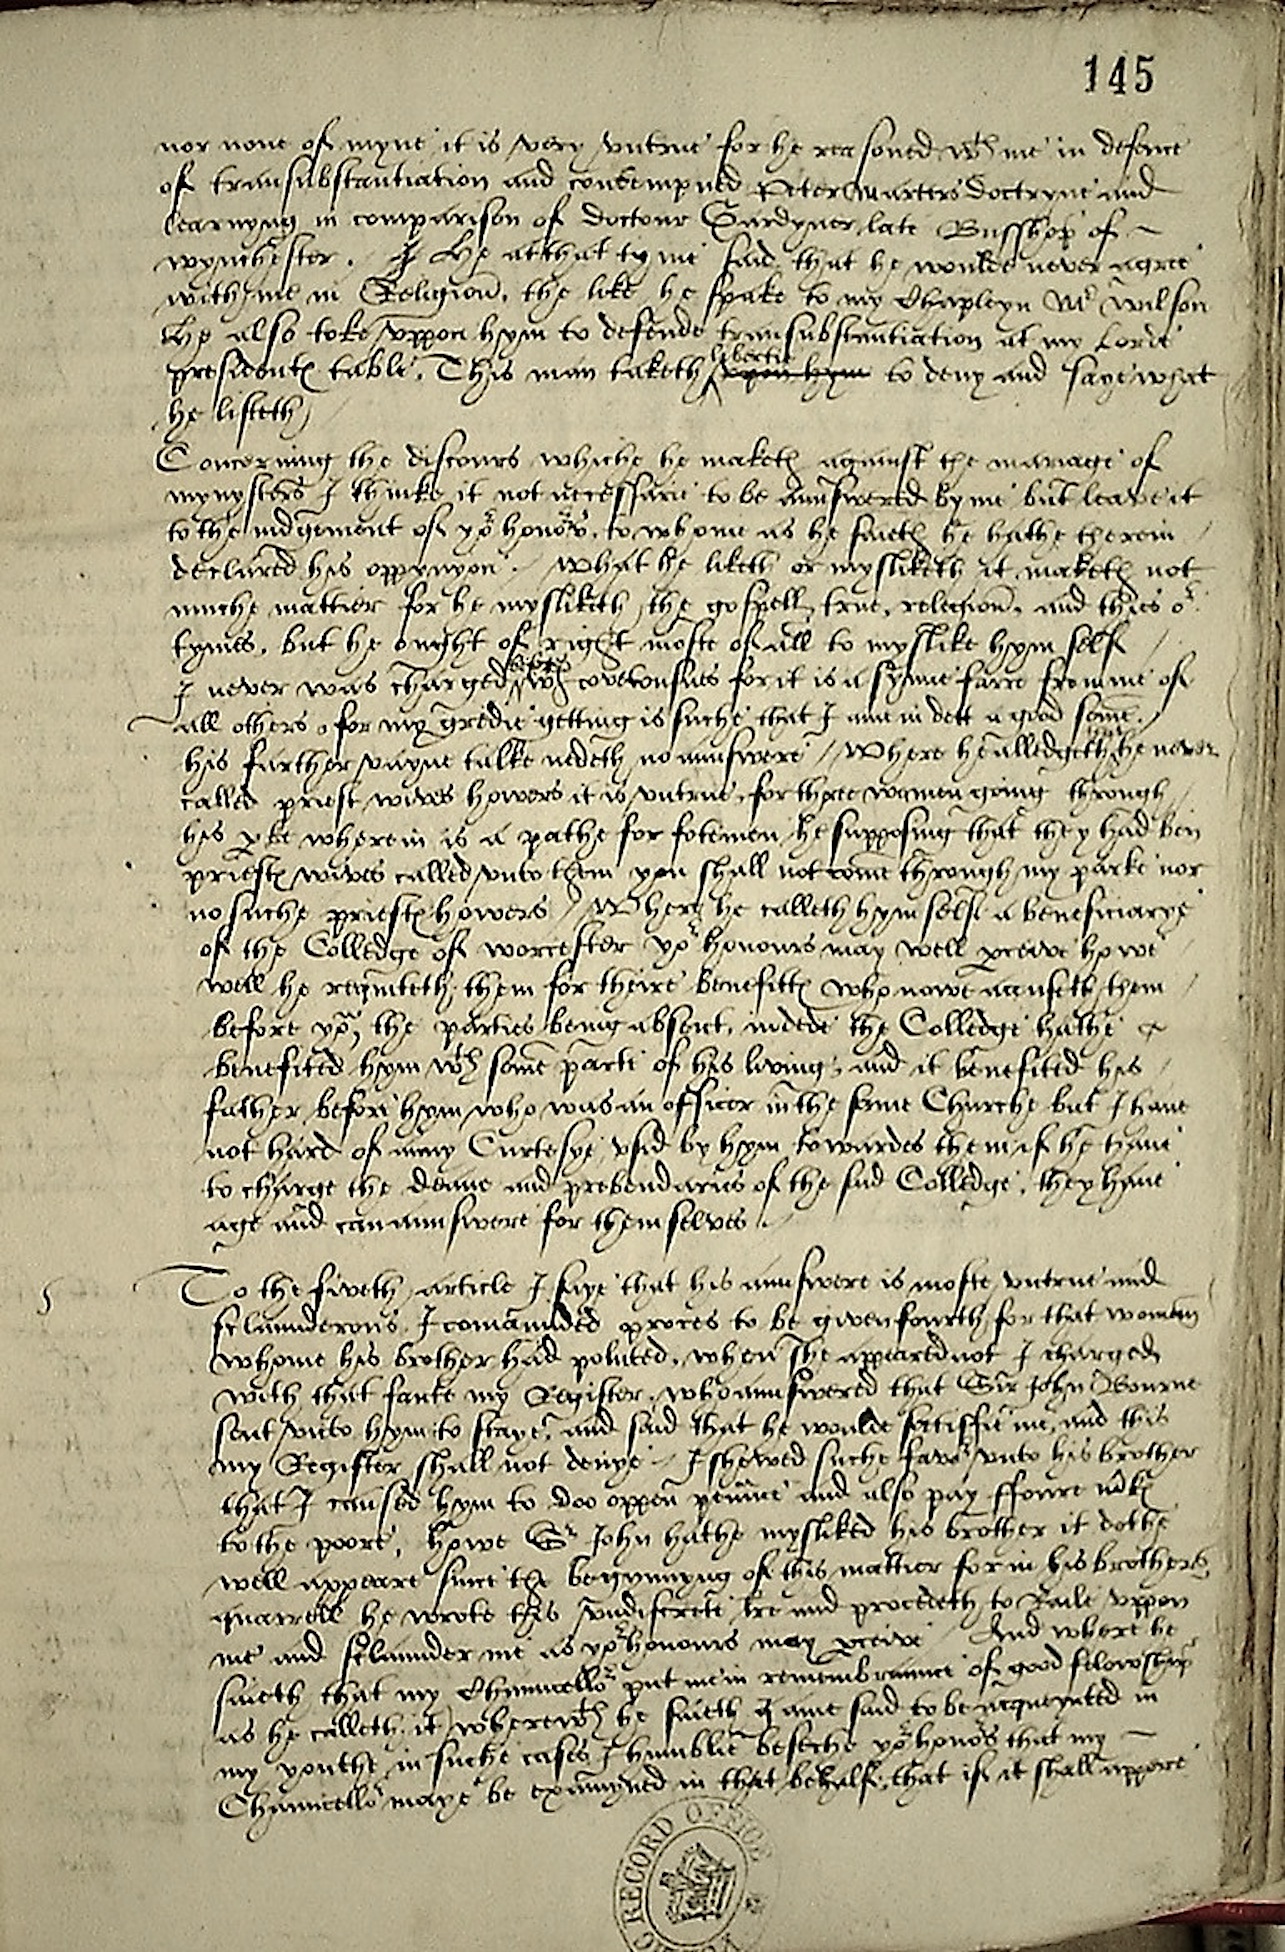 145
nor none of myne it is very vntrue for he reasoned wth me in defence
of transubstantiation and contempned Peter Marters doctryne and
learnyng in comparison of doctour Gardyner late Busshop of
wynchester. He at that tyme said that he woulde never agree
with me in Religion, the like he spake to my Chapleyn Mr Wilson
He also toke vppon hym to defende transubstantiation at my Lorde
presidents table. This man taketh libertie to deny and saye what
he listeth
Concerning the discours whiche he maketh against the mariage of
mynysters I thinke it not necessarie to be aunswered by me but leave it
to the iudgement of yor honors, to whome as he saieth he hathe therein
declared his oppynyon. What he liketh or mysliketh it maketh not
muche mattier for he mysliketh the gospell, true, relegion, and thies or
tymes, but he ought of right moste of all to myslike hym self
I never was charged before wth covetousnes for it is a synne farre from me of
all others, for my gredie getting is suche that I am in dett a good some.
his further vayne talke nedeth no aunswere / Where he alledgeth he never
called priests wives howers it is vntrue, for three women going through
his pke wherein is a pathe for fotemen he supposing that they had ben
priests wives called vnto them you shall not come through my parke nor
no suche priests howers / Where he calleth hym self a beneficiarye
of the Colledge of worcester yor honours may well pceive howe
well he requiteth them for theire benefitts who nowe accuseth them
before yor, the parties being absent, indede the Colledge hathe
benefited hym wth some parte of his living, and it benefited his
father before hym who was an officer in the same Churche but I have
not hard of any Curtesye vsed by hym towardes them if he have
to charge the deane and prebendaries of the said Colledge, they have
age and can aunswere for themselves.
5
To the fiveth article I saye that his aunswere is moste vntrue and
sclaunderous. I comaunded proces to be given fourth for that woman
whome his brother had poluted, when she appeared not I charged
with that faute my Register, who aunswered that Sir John Bourne
sent vnto hym to staye, and said that he woulde satisfie me, and this
my Register shall not denye. I shewed suche favor vnto his brother
that I caused hym to doo oppen pennce and also pay ffoure mks
to the poore, howe Sr John hathe mysliked his brother it dothe
well appeare since the begynnyng of this mattier for in his brothers
quarrell he wrote this vndiscrete lre and procedeth to Raile vppon
me and sclaunder me as yor honours may pceive And where he
saieth that my Chauncellor put me in remembraunce of good felowship
as he calleth it wherewth he saieth I ame said to be acqueynted in
my youthe in suche cases I humblie beseche yor honors that my
Chauncellor maye be examyned in that behalf, that if it shall appere
RECORD OFFICE